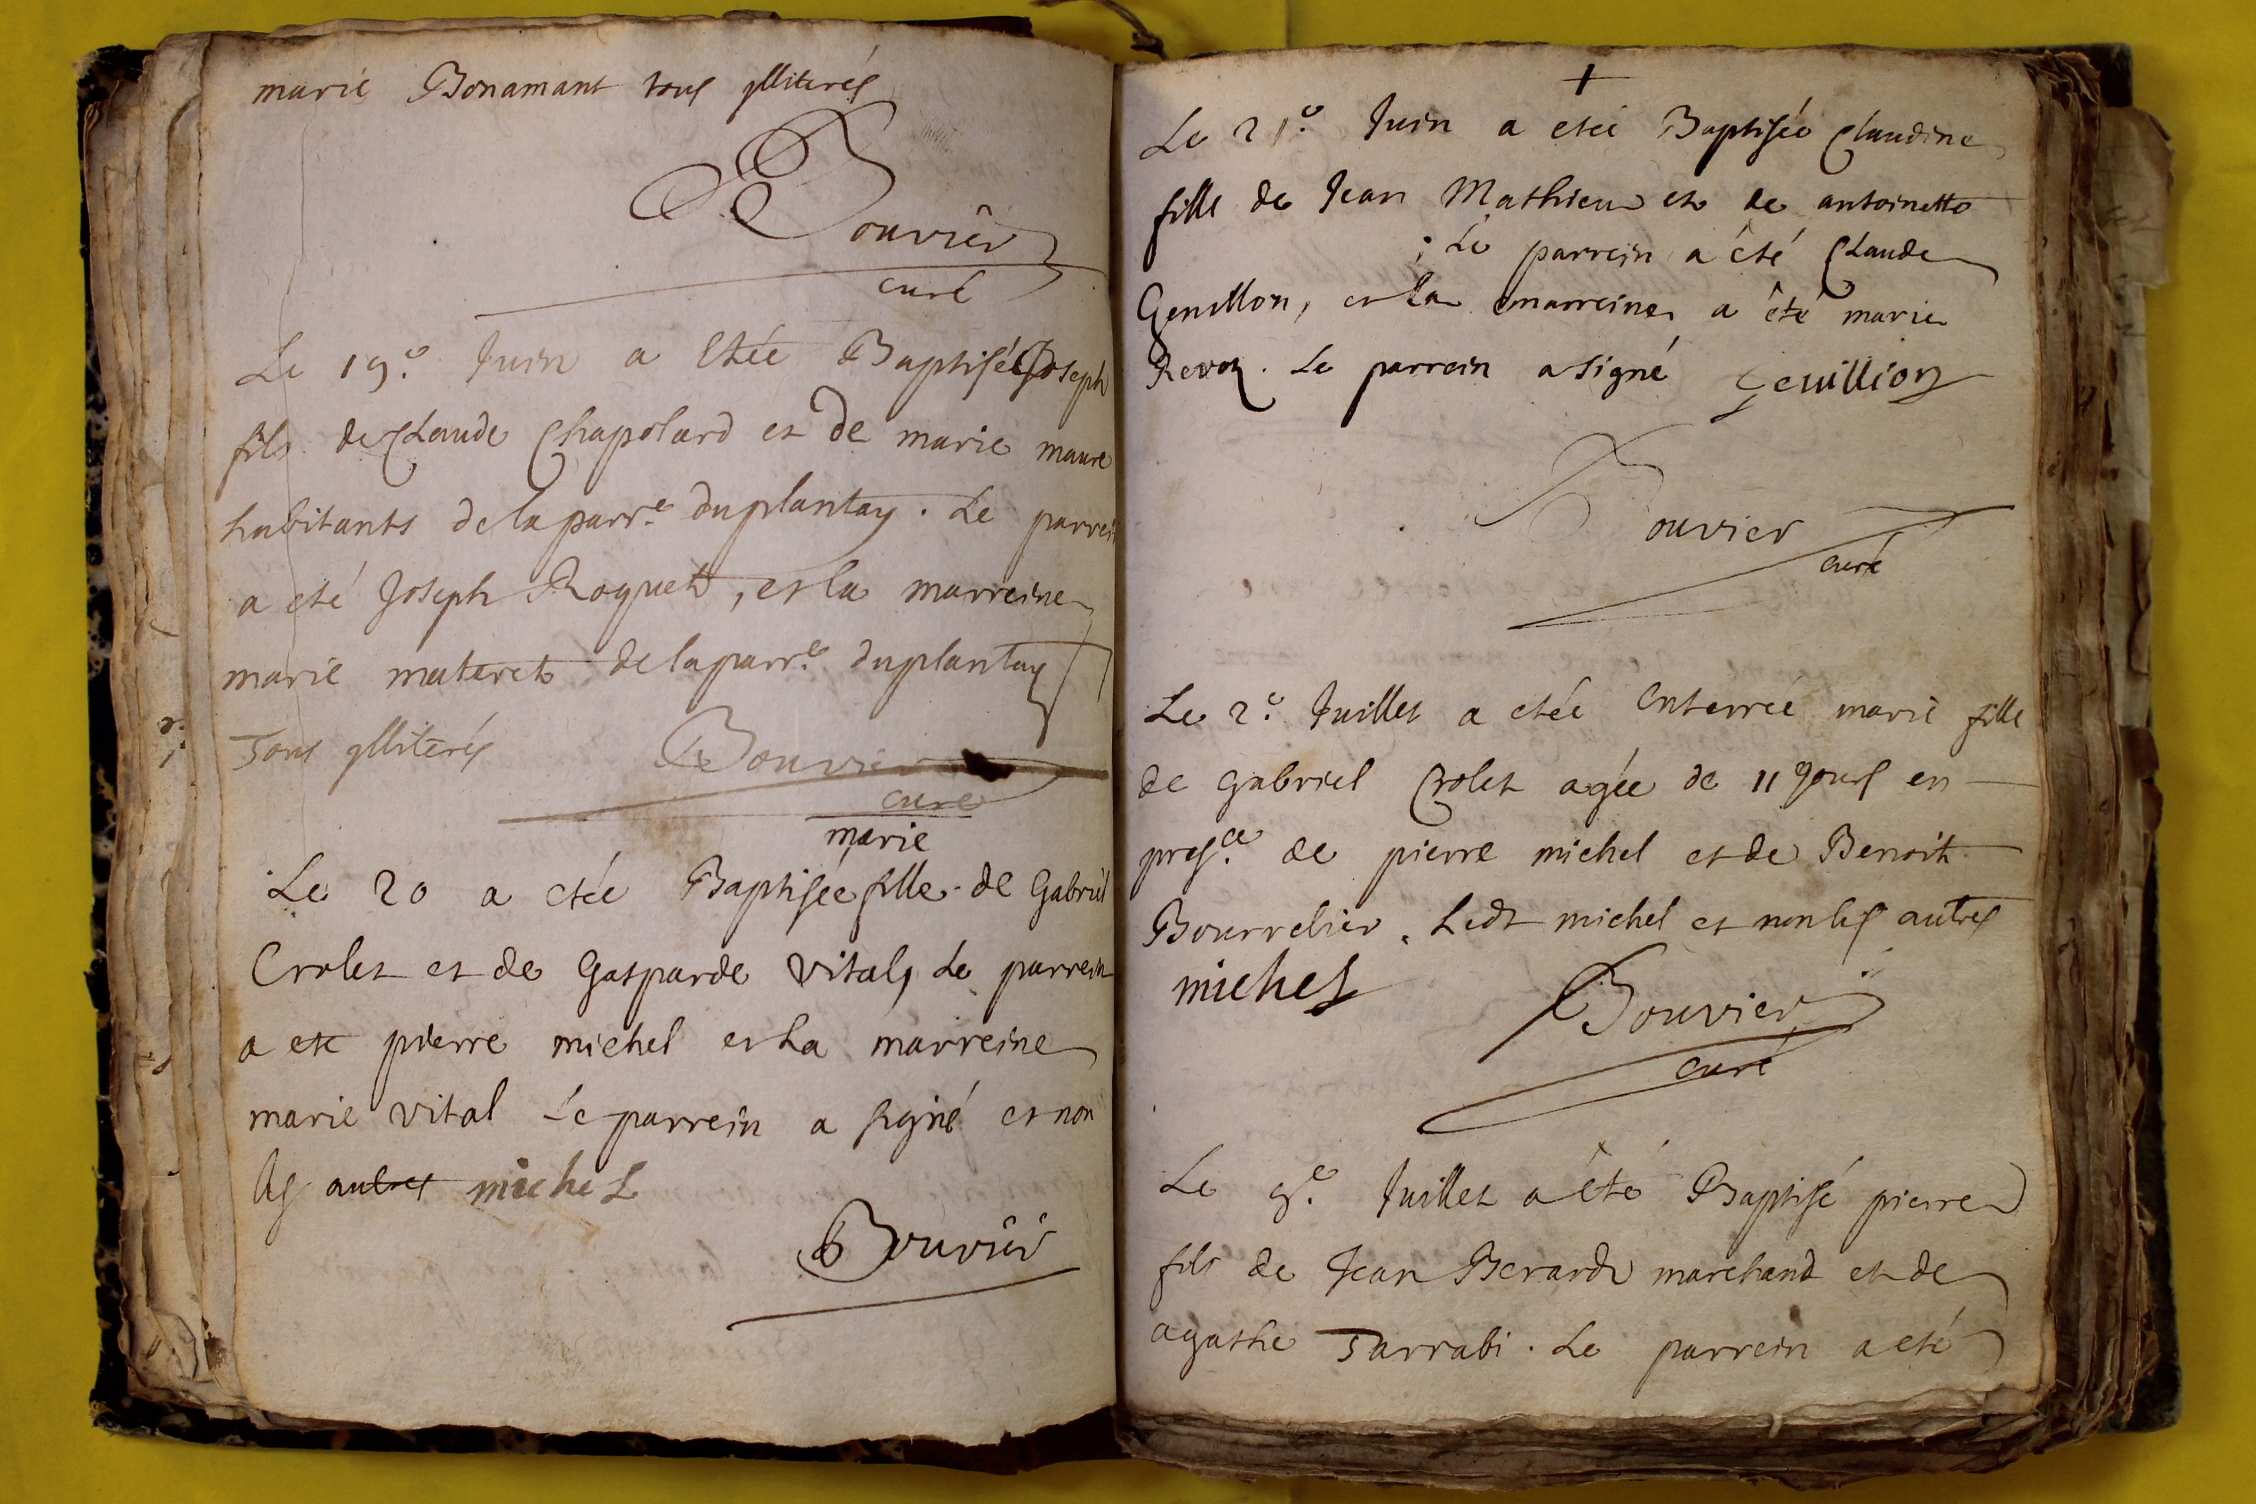 marie Bonamant tous ylliterés
Bouvier
curé
Le 19.e Juin a etée Baptisée Joseph
fils de Claude Chapolard et de marie maure
habitants de la parr.e du plantay. Le parrein
a eté Joseph Roquet, et la marreine
marie materet de la parr.e du plantay
Tous ylliterés Bouvier
curé
marie
Le 20 a etée Baptisée fille de Gabriel
Crolet et de Gasparde vital, Le parrein
a ete pierre michel et La marreine
marie vital Le parrein a signé et non
les autres michel
Bouvier
+
Le 21.e Juin a etée Baptisée Claudine
fille de Jean Mathieu et de antoinette
; Le parrein a êté Claude
Genillon, et la marreine a êté marie
Revoz. Le parrein a signé Genillion
Bouvier
curé
Le 2.e Juillet a etée Enterrée marie fille
de gabriel Crolet agée de 11 Jours en
presce. de pierre michel et de Benoit
Bourrelier. Ledt michel et non les autres
michel
Bouvier
curé
Le 9.e Juillet a êté Baptisé pierre
fils de Jean Berard marchand et de
agathe Tarrabi. Le parrein a eté